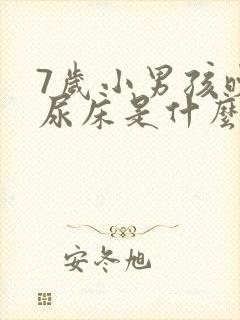 7歲小男孩
尿床是什麼
安冬旭